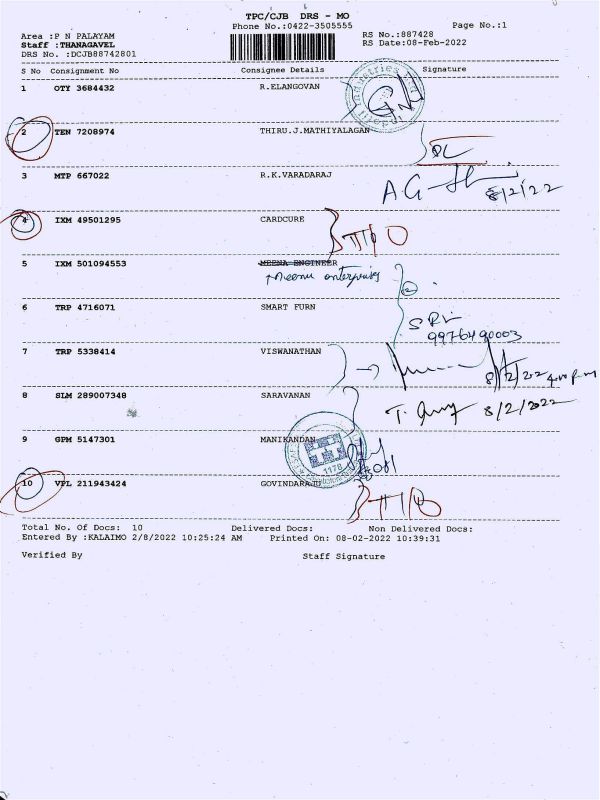 TPC/CJB DRS - MO
Phone No.:0422-3505555
Page No.:1
Area :P N PALAYAM
Staff :THANAGAVEL
DRS No. :DCJB88742801
RS No.:887428
RS Date:08-Feb-2022
S No Consignment No Consignee Details Signature
1 OTY 3684432 R.ELANGOVAN
2 TEN 7208974 THIRU.J.MATHIYALAGAN
3 MTP 667022 R.K.VARADARAJ
8/2/22
4 IXM 49501295 CARDCURE
5 IXM 501094553 MEENA ENGINEER
Meenu enterprises
6 TRP 4716071 SMART FURN
9976490003
7 TRP 5338414 VISWANATHAN
8 SLM 289007348 SARAVANAN
8/2/2022
9 GPM 5147301 MANIKANDAN
1178
10 VPL 211943424 GOVINDARAJU
Total No. Of Docs: 10 Delivered Docs: Non Delivered Docs:
Entered By :KALAIMO 2/8/2022 10:25:24 AM Printed On: 08-02-2022 10:39:31
Verified By Staff Signature